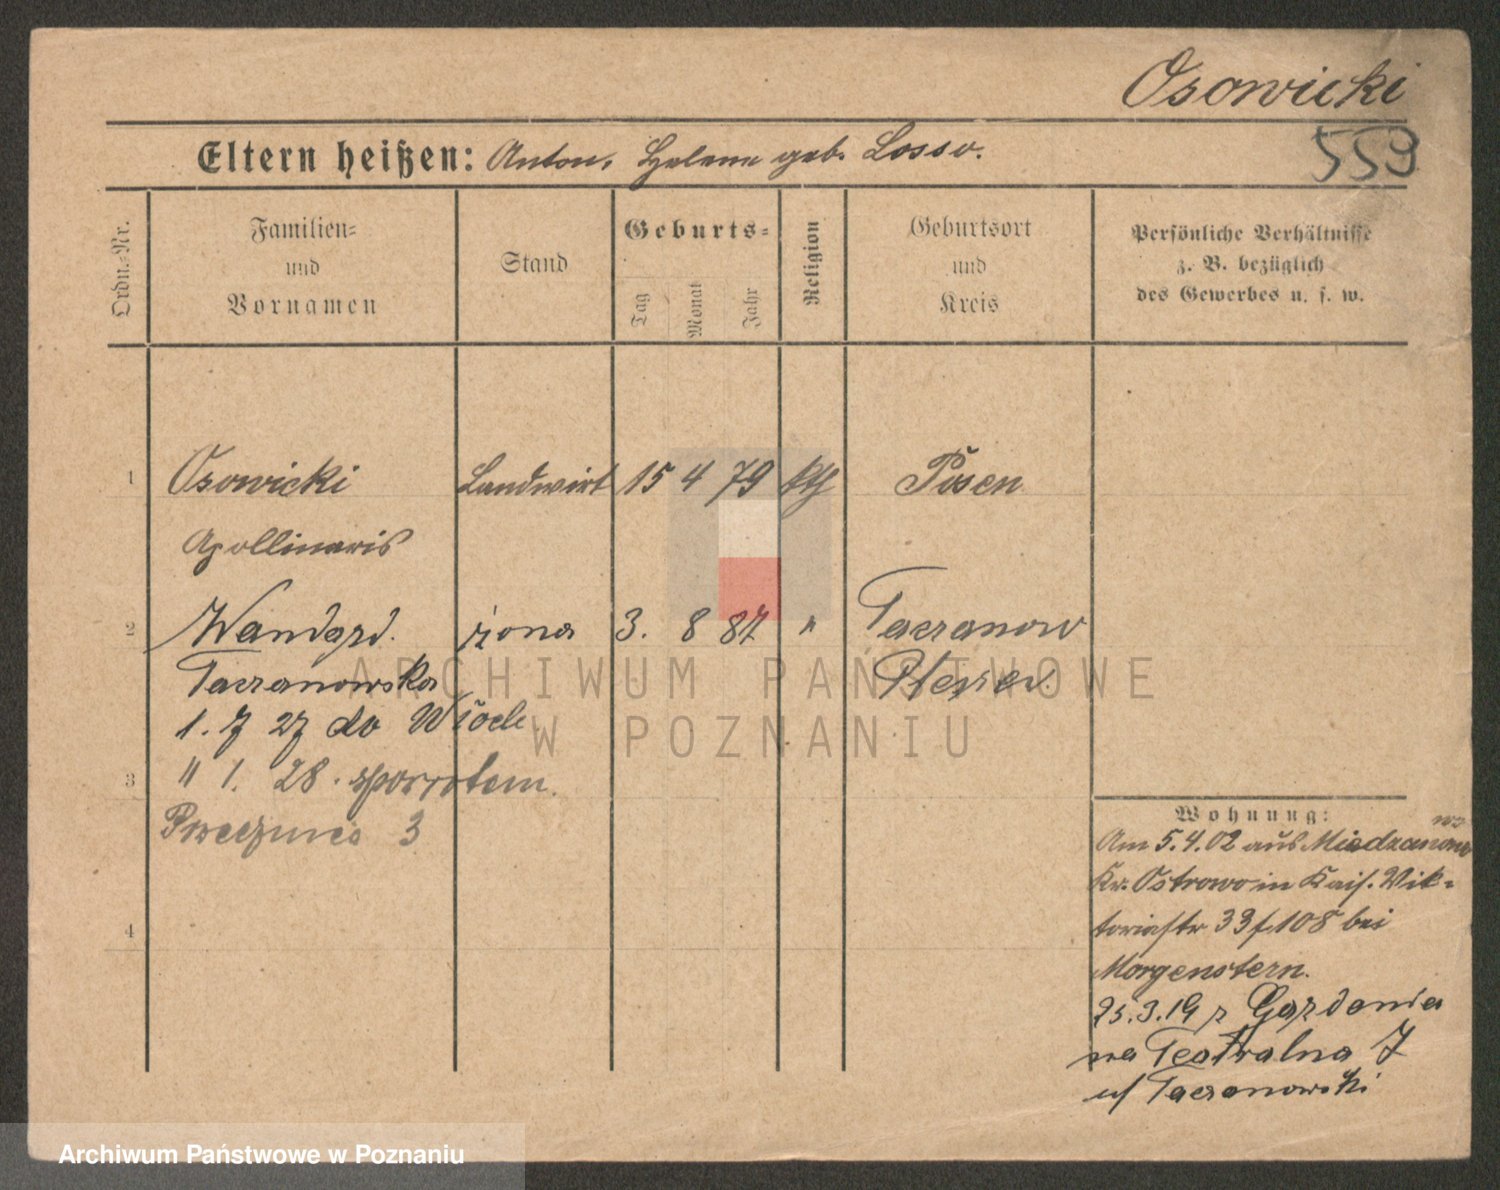 Osowicki
559
Eltern heißen: Anton, Helene geb. Losso.
Ordn.-Nr.
Familien-
und
Vornamen
Stand
Geburts-
Tag
Monat
Jahr
Religion
Geburtsort
und
Kreis
Persönliche Verhältnisse
z. B. bezüglich
des Gewerbes u. s. w.
1 Osowicki Landwirt 15 4 79 kth Posen
Apollinaris
2 żona 3. 8 87 " Taczanow
Taczanowska
1. 7 27 do Włoch
3 " 1. 28.
3
4
Wohnung:
Am 5.4.02 aus
Kr. Ostrowo in Kais. Vik-
toriastr 33 f. 108 bei
Morgenstern.
25.3.19 z
na Teatralna 7
Taczanowski
ARCHIWUM PAŃSTWOWE
W POZNANIU
Archiwum Państwowe w Poznaniu